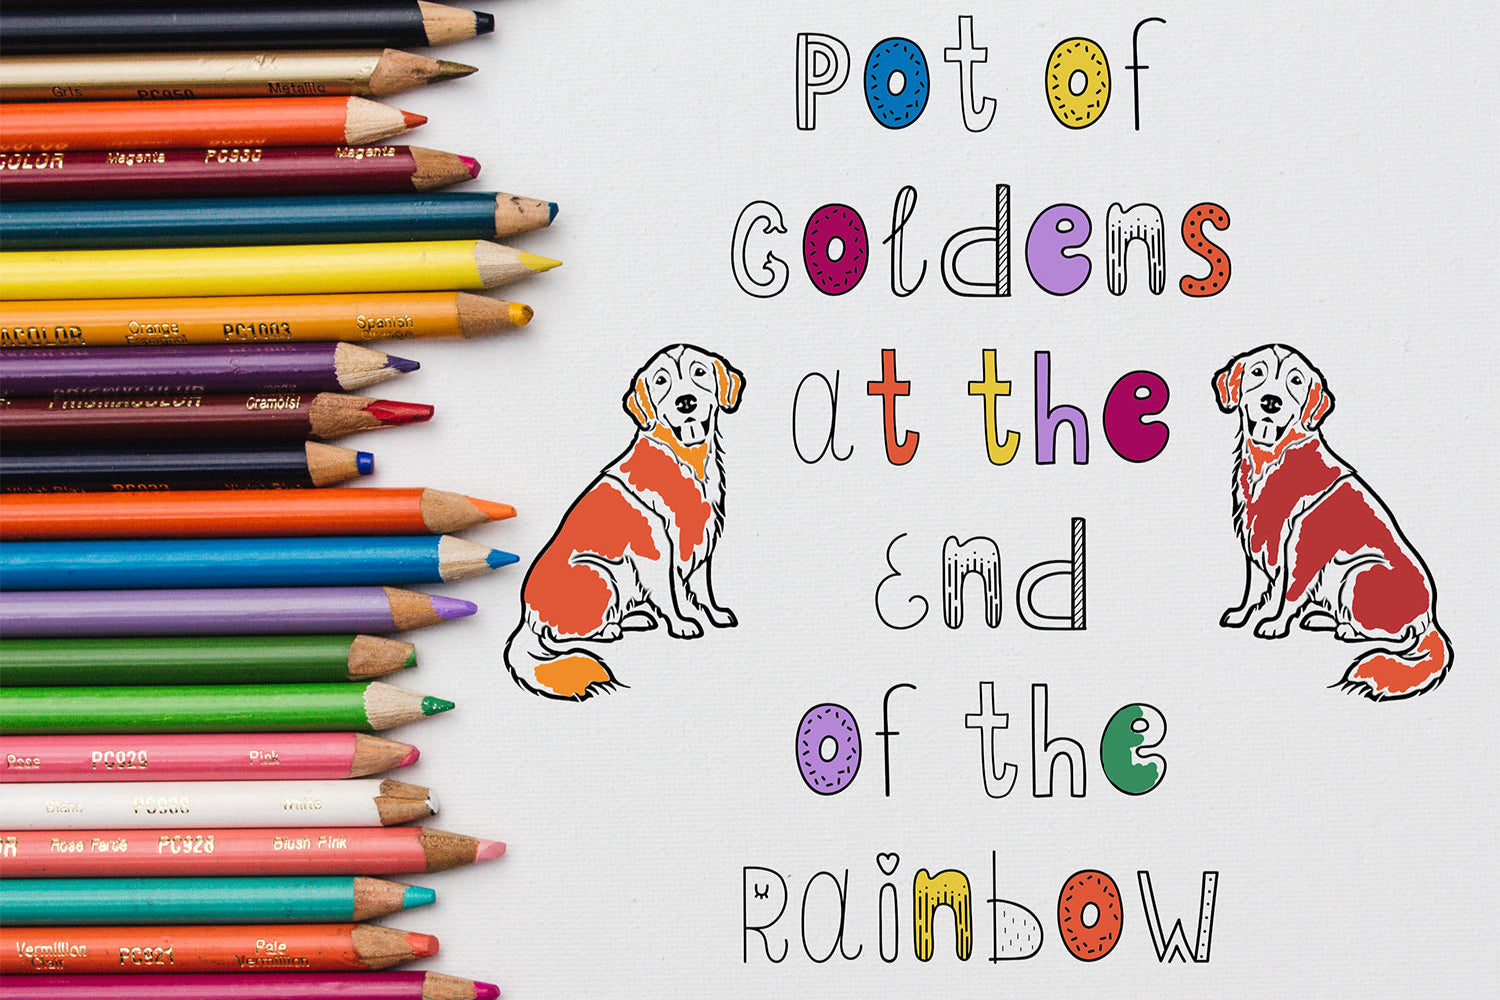 Pot of
Goldens
at the
End
of the
Rainbow
Gris PC950 Metallic
COLOR Magenta PC930 Magenta
ACOLOR Orange PC1003 Spanish
PRISMACOLOR Cramoisi
Rose PC929 Pink
Blanc PC938 White
OR Rose Fardé PC928 Blush Pink
Vermillion Clair PC921 Pale Vermilion